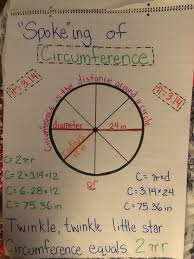 "Spoke"ing of
Circumference
π=3.14
π=3.14
Circumference - the distance around a circle
diameter
24 in
radius
12 in
C=2πr
C=2×3.14×12
C=6.28×12
C=75.36in
or
C=πxd
C=3.14×24
C=75.36in
Twinkle, twinkle little star
Circumference equals 2πr